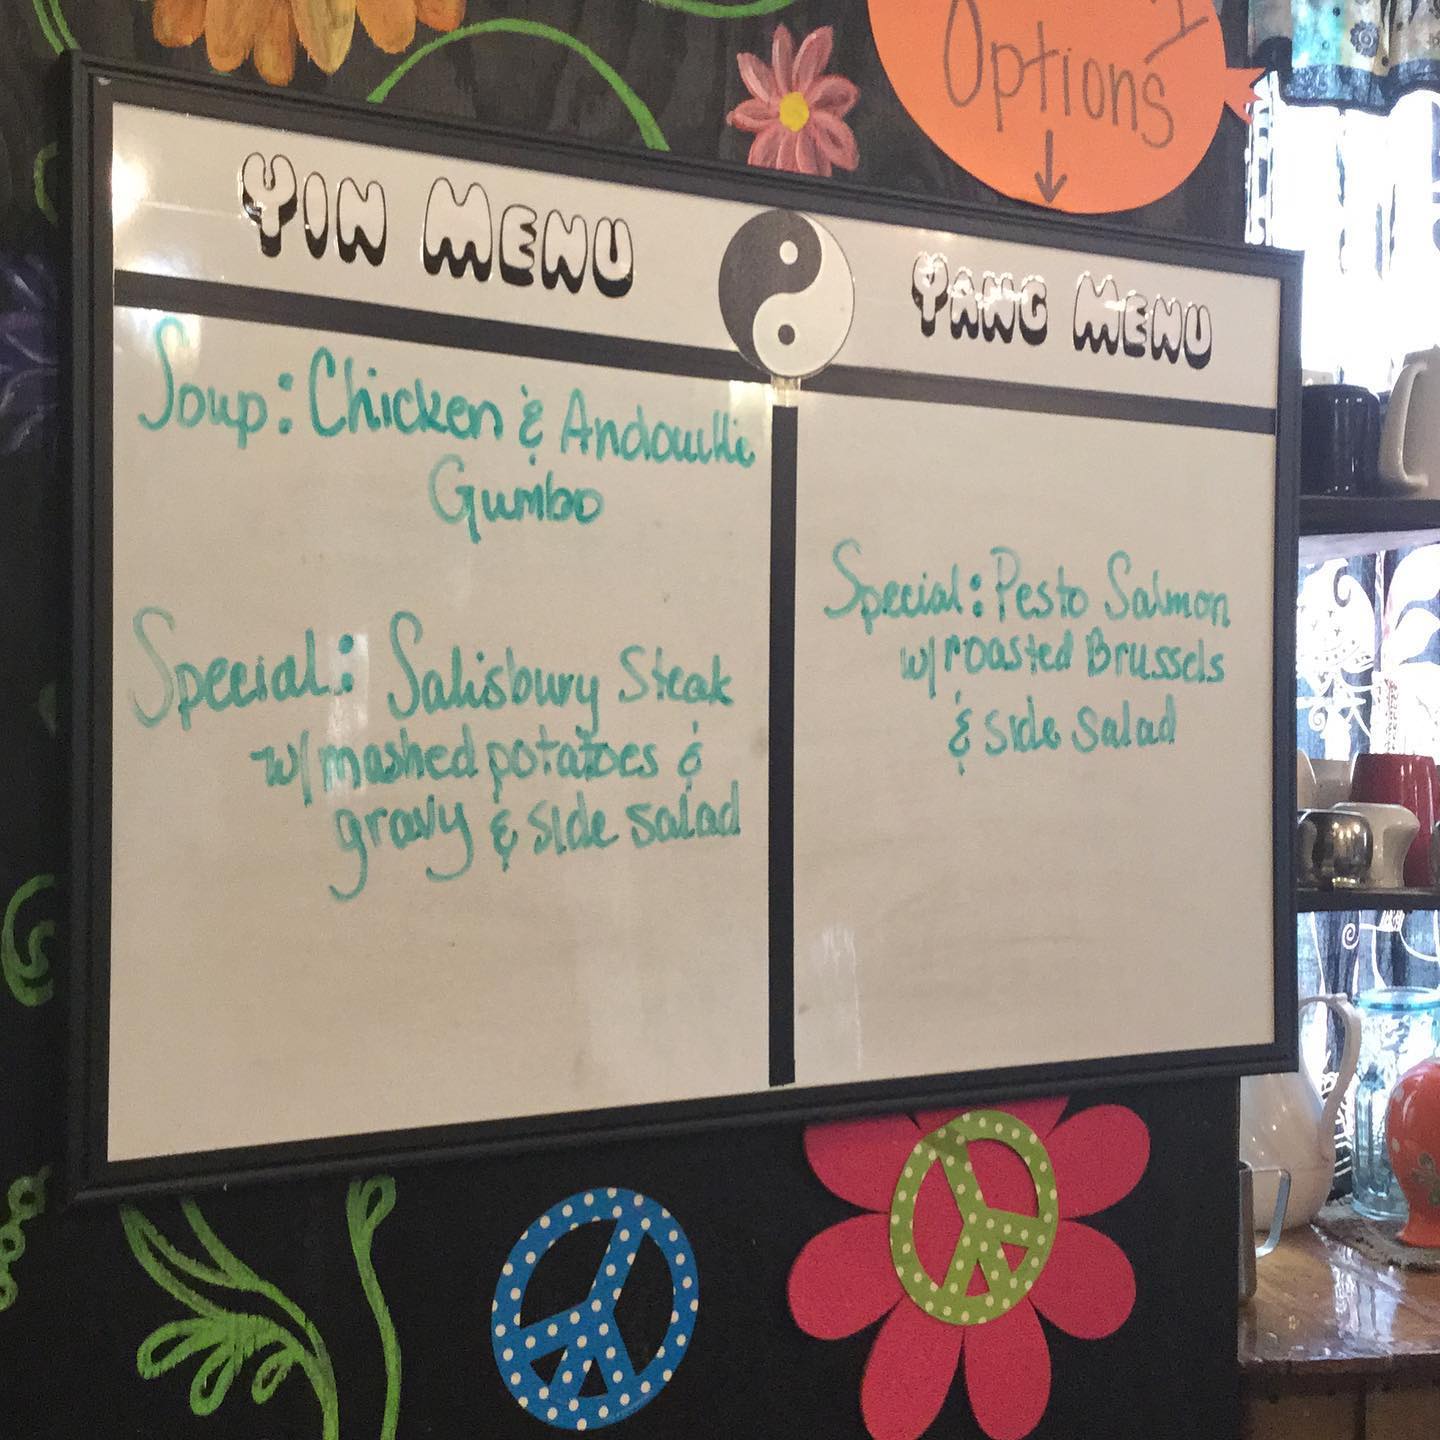 Options
Yin Menu
Yang Menu
Soup: Chicken & Andouille
Gumbo
Special: Salisbury Steak
w/ mashed potatoes &
gravy & side salad
Special: Pesto Salmon
w/ roasted Brussels
& side salad